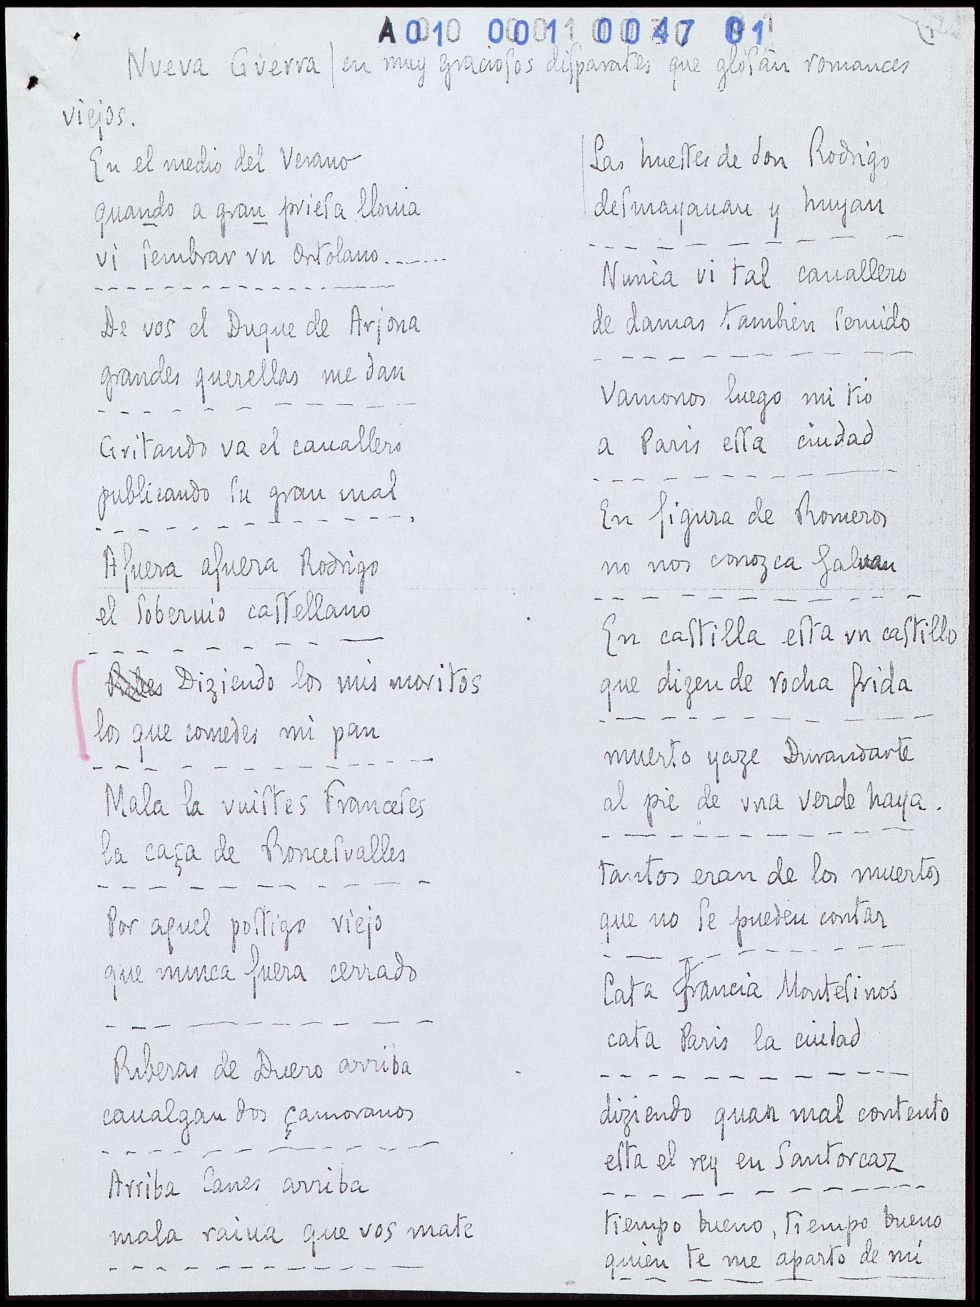 A010 0001 0047 01
Nveva Gverra / en muy graciosos disparates que glosan romances
viejos.
En el medio del Verano
quando a gran priesa llouia
vi sembrar vn Ortolano.......
De vos el Duque de Arjona
grandes querellas me dan
Gritando va el cauallero
publicando su gran mal
Afuera afuera Rodrigo
el soberuio castellano
Diziendo los mis moritos
los que comedes mi pan
Mala la vuistes Franceses
la caça de Roncesvalles
Por aquel postigo viejo
que nunca fuera cerrado
Riberas de Duero arriba
caualgan dos çamoranos
Arriba Canes arriba
mala raiua que vos mate
Las huestes de don Rodrigo
desmayauan y huyan
Nunca vi tal cauallero
de damas tambien seruido
Vamonos luego mi tio
a Paris essa ciudad
En figura de Romeros
no nos conozca Galuan
En castilla esta vn castillo
que dizen de rocha frida
muerto yaze Durandarte
al pie de vna verde haya.
tantos eran de los muertos
que no se pueden contar
Cata francia Montesinos
cata Paris la ciudad
diziendo quan mal contento
esta el rey en Santorcaz
tiempo bueno, tiempo bueno
quien te me aparto de mi